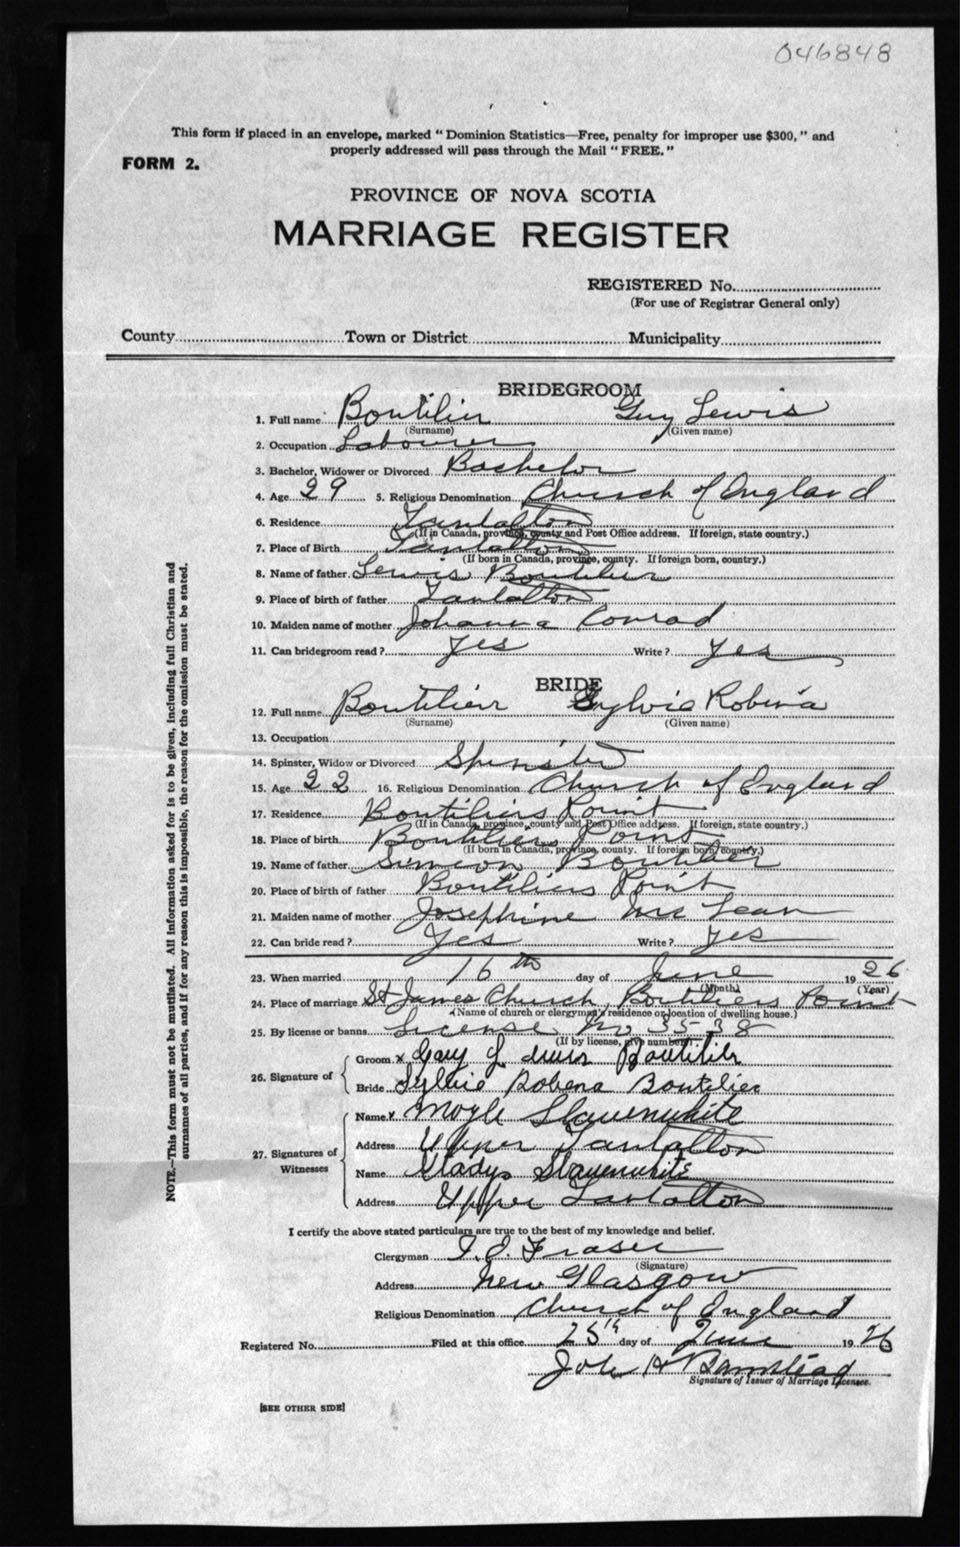 046848
This form if placed in an envelope, marked " Dominion Statistics—Free, penalty for improper use $300, " and
properly addressed will pass through the Mail " FREE. "
FORM 2.
PROVINCE OF NOVA SCOTIA
MARRIAGE REGISTER
REGISTERED No.
(For use of Registrar General only)
County Town or District Municipality
BRIDEGROOM
1. Full name Boutilier Guy Lewis
(Surname) (Given name)
2. Occupation Labourer
3. Bachelor, Widower or Divorced Bachelor
4. Age 29 5. Religious Denomination Church of England
6. Residence Tantallon
(If in Canada, province, county and Post Office address. If foreign, state country.)
7. Place of Birth Tantallon
(If born in Canada, province, county. If foreign born, country.)
8. Name of father Lewis Boutilier
9. Place of birth of father Tantallon
10. Maiden name of mother Johanna Conrad
11. Can bridegroom read ? Yes Write ? Yes
BRIDE
12. Full name Boutilier Sylvia Robena
(Surname) (Given name)
13. Occupation
14. Spinster, Widow or Divorced Spinster
15. Age 22 16. Religious Denomination Church of England
17. Residence Boutiliers Point
(If in Canada, province, county and Post Office address. If foreign, state country.)
18. Place of birth Boutiliers Point
(If born in Canada, province, county. If foreign born, country.)
19. Name of father Simeon Boutilier
20. Place of birth of father Boutiliers Point
21. Maiden name of mother Josephine McLean
22. Can bride read ? Yes Write ? Yes
23. When married 16th day of June 1926
(Month) (Year)
24. Place of marriage St James Church, Boutiliers Point
(Name of church or clergyman's residence or location of dwelling house.)
25. By license or banns License No 3538
(If by license, give number)
26. Signature of
Groom x Guy Lewis Boutilier
Bride Sylvia Robena Boutilier
27. Signatures of Witnesses
Name x Moyle Slauenwhite
Address Upper Tantallon
Name Gladys Slauenwhite
Address Upper Tantallon
I certify the above stated particulars are true to the best of my knowledge and belief.
Clergyman Fraser
(Signature)
Address New Glasgow
Religious Denomination Church of England
Registered No. Filed at this office 25th day of June 1926
Signature of Issuer of Marriage Licenses.
[SEE OTHER SIDE]
NOTE.—This form must not be mutilated. All information asked for is to be given, including full Christian and
surnames of all parties, and if for any reason this is impossible, the reason for the omission must be stated.